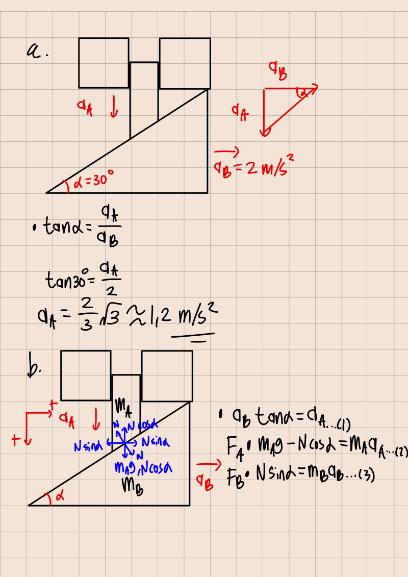 a.
a_B
a_A ↓
a_A
α
α=30°
a_B = 2 m/s²
• tanα = a_A/a_B
tan30° = a_A/2
a_A = 2/3 √3 ≈ 1,2 m/s²
b.
m_A
+
a_A
N Ncosα
Nsinα Nsinα
N
m_Ag, Ncosα
m_B
+
α
a_B
• a_B tanα = a_A ...(1)
F_A • m_Ag − Ncosα = m_Aa_A ...(2)
F_B • Nsinα = m_Ba_B ...(3)